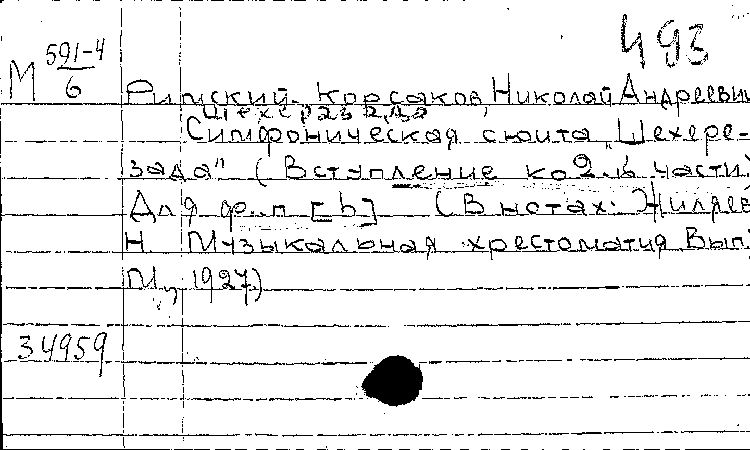 493
М 591-4
6
Римский-Корсаков, Николай Андреевич
Шехеразада
Симфоническая сюита „Шехере-
зада" (Вступление ко 2-й части.
Для ф.-п [b] (В нотах: Жиляев
Н. Музыкальная хрестоматия Вып.
М., 1927.)
34959